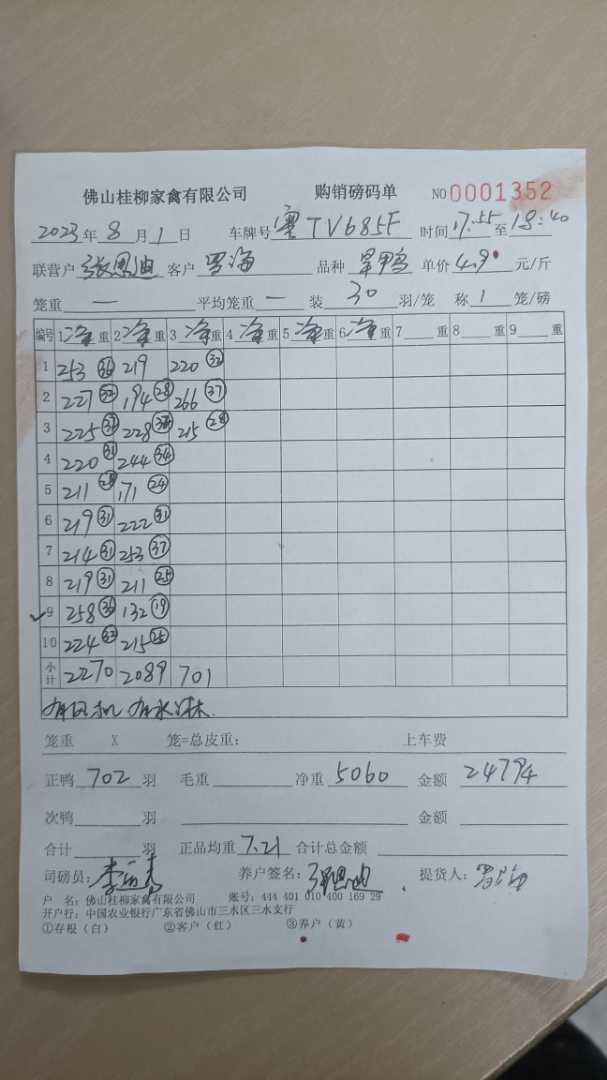 佛山桂柳家禽有限公司 购销磅码单 NO 0001352
2023年8月1日 车牌号 TV685F 时间 17:55至18:40
联营户 张恩迪 客户 罗海 品种 单价 4.9 元/斤
笼重 — 平均笼重 — 装 30 羽/笼 称 1 笼/磅
编号 1 净重 2 净重 3 净重 4 净重 5 净重 6 净重 7 重 8 重 9 重
1 253 36 219 220 32
2 227 32 194 28 266 37
3 225 228 215 28
4 220 31 244 34
5 211 28 171 24
6 219 31 222 31
7 214 31 253 37
8 219 31 211 25
✓9 258 36 132 19
10 224 215
小计 2270 2089 701
有风机 有水淋.
笼重 X 笼=总皮重: 上车费
正鸭 702 羽 毛重 净重 5060 金额 24794
次鸭 羽 金额
合计 羽 正品均重 7.21 合计总金额
司磅员: 养户签名: 张恩迪 提货人: 罗海
户 名: 佛山桂柳家禽有限公司 账号: 444 401 010 400 169 29
开户行: 中国农业银行广东省佛山市三水区三水支行
①存根(白) ②客户(红) ③养户(黄)